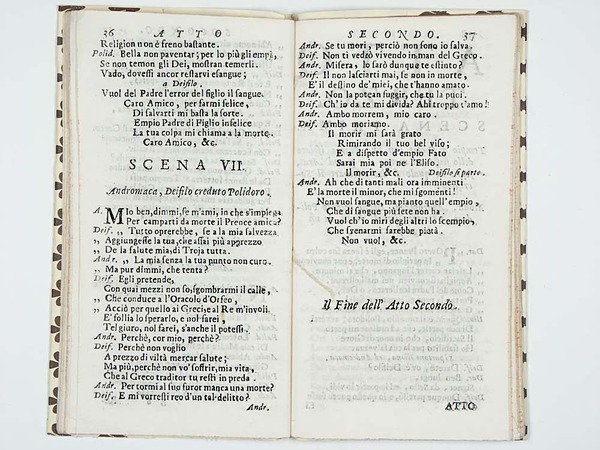 36 ATTO
Religion non è freno bastante.
Polid. Bella non paventar; per lo più gl'empj,
Se non temon gli Dei, mostran temerli.
Vado, dovessi ancor restarvi esangue;
a Deifilo.
Vuol del Padre l'error del figlio il sangue.
Caro Amico, per farmi felice,
Di salvarti mi basta la sorte.
Empio Padre di Figlio infelice
La tua colpa mi chiama a la morte.
Caro Amico, &c.
SCENA VII.
Andromaca, Deifilo creduto Polidoro.
A. Mio ben, dimmi, se m'ami, in che s'impiega
Per camparti da morte il Prence amico?
Deif. „ Tutto oprerebbe, se a la mia salvezza
„ Aggiungesse la tua, che assai più apprezzo
„ De la salute mia, di Troja tutta.
Andr. „ La mia senza la tua punto non curo.
„ Ma pur dimmi, che tenta?
Deif. Egli pretende,
Con quai mezzi non so, sgombrarmi il calle,
„ Che conduce a l'Oracolo d'Orfeo,
„ Acciò per quello ai Greci, e al Re m'involi.
E' follia lo sperarlo, e nol farei,
Tel giuro, nol farei, s'anche il potessi.
Andr. Perchè, cor mio, perchè?
Deif. Perchè non voglio
A prezzo di viltà mercar salute;
Ma più, perchè non vo' soffrir, mia vita,
Che al Greco traditor tu resti in preda.
Andr. Per tormi al suo furor manca una morte?
Deif. E mi vorresti reo d'un tal delitto?
Andr.
SECONDO. 37
Andr. Se tu mori, perciò non sono io salva.
Deif. Non ti vedrò vivendo in man del Greco.
Andr. Misera, lo sarò dunque te estinto?
Deif. Il non lasciarti mai, se non in morte,
E' il destino de' miei, che t'hanno amato.
Andr. Non la potean fuggir, che tu la puoi.
Deif. Ch'io da te mi divida? Ahi troppo t'amo!
Andr. Ambo morrem, mio caro.
Deif. Ambo moriamo.
Il morir mi sarà grato
Rimirando il tuo bel viso;
E a dispetto d'empio Fato
Sarai mia poi ne l'Eliso.
Il morir, &c. Deifilo si parte.
Andr. Ah che di tanti mali ora imminenti
E' la morte il minor, che mi sgomenti!
Non vuol sangue, ma pianto quell'empio,
Che di sangue più sete non ha.
Vuol ch'io miri degli altri lo scempio,
Che svenarmi sarebbe pietà.
Non vuol, &c.
Il Fine dell' Atto Secondo.
ATTO